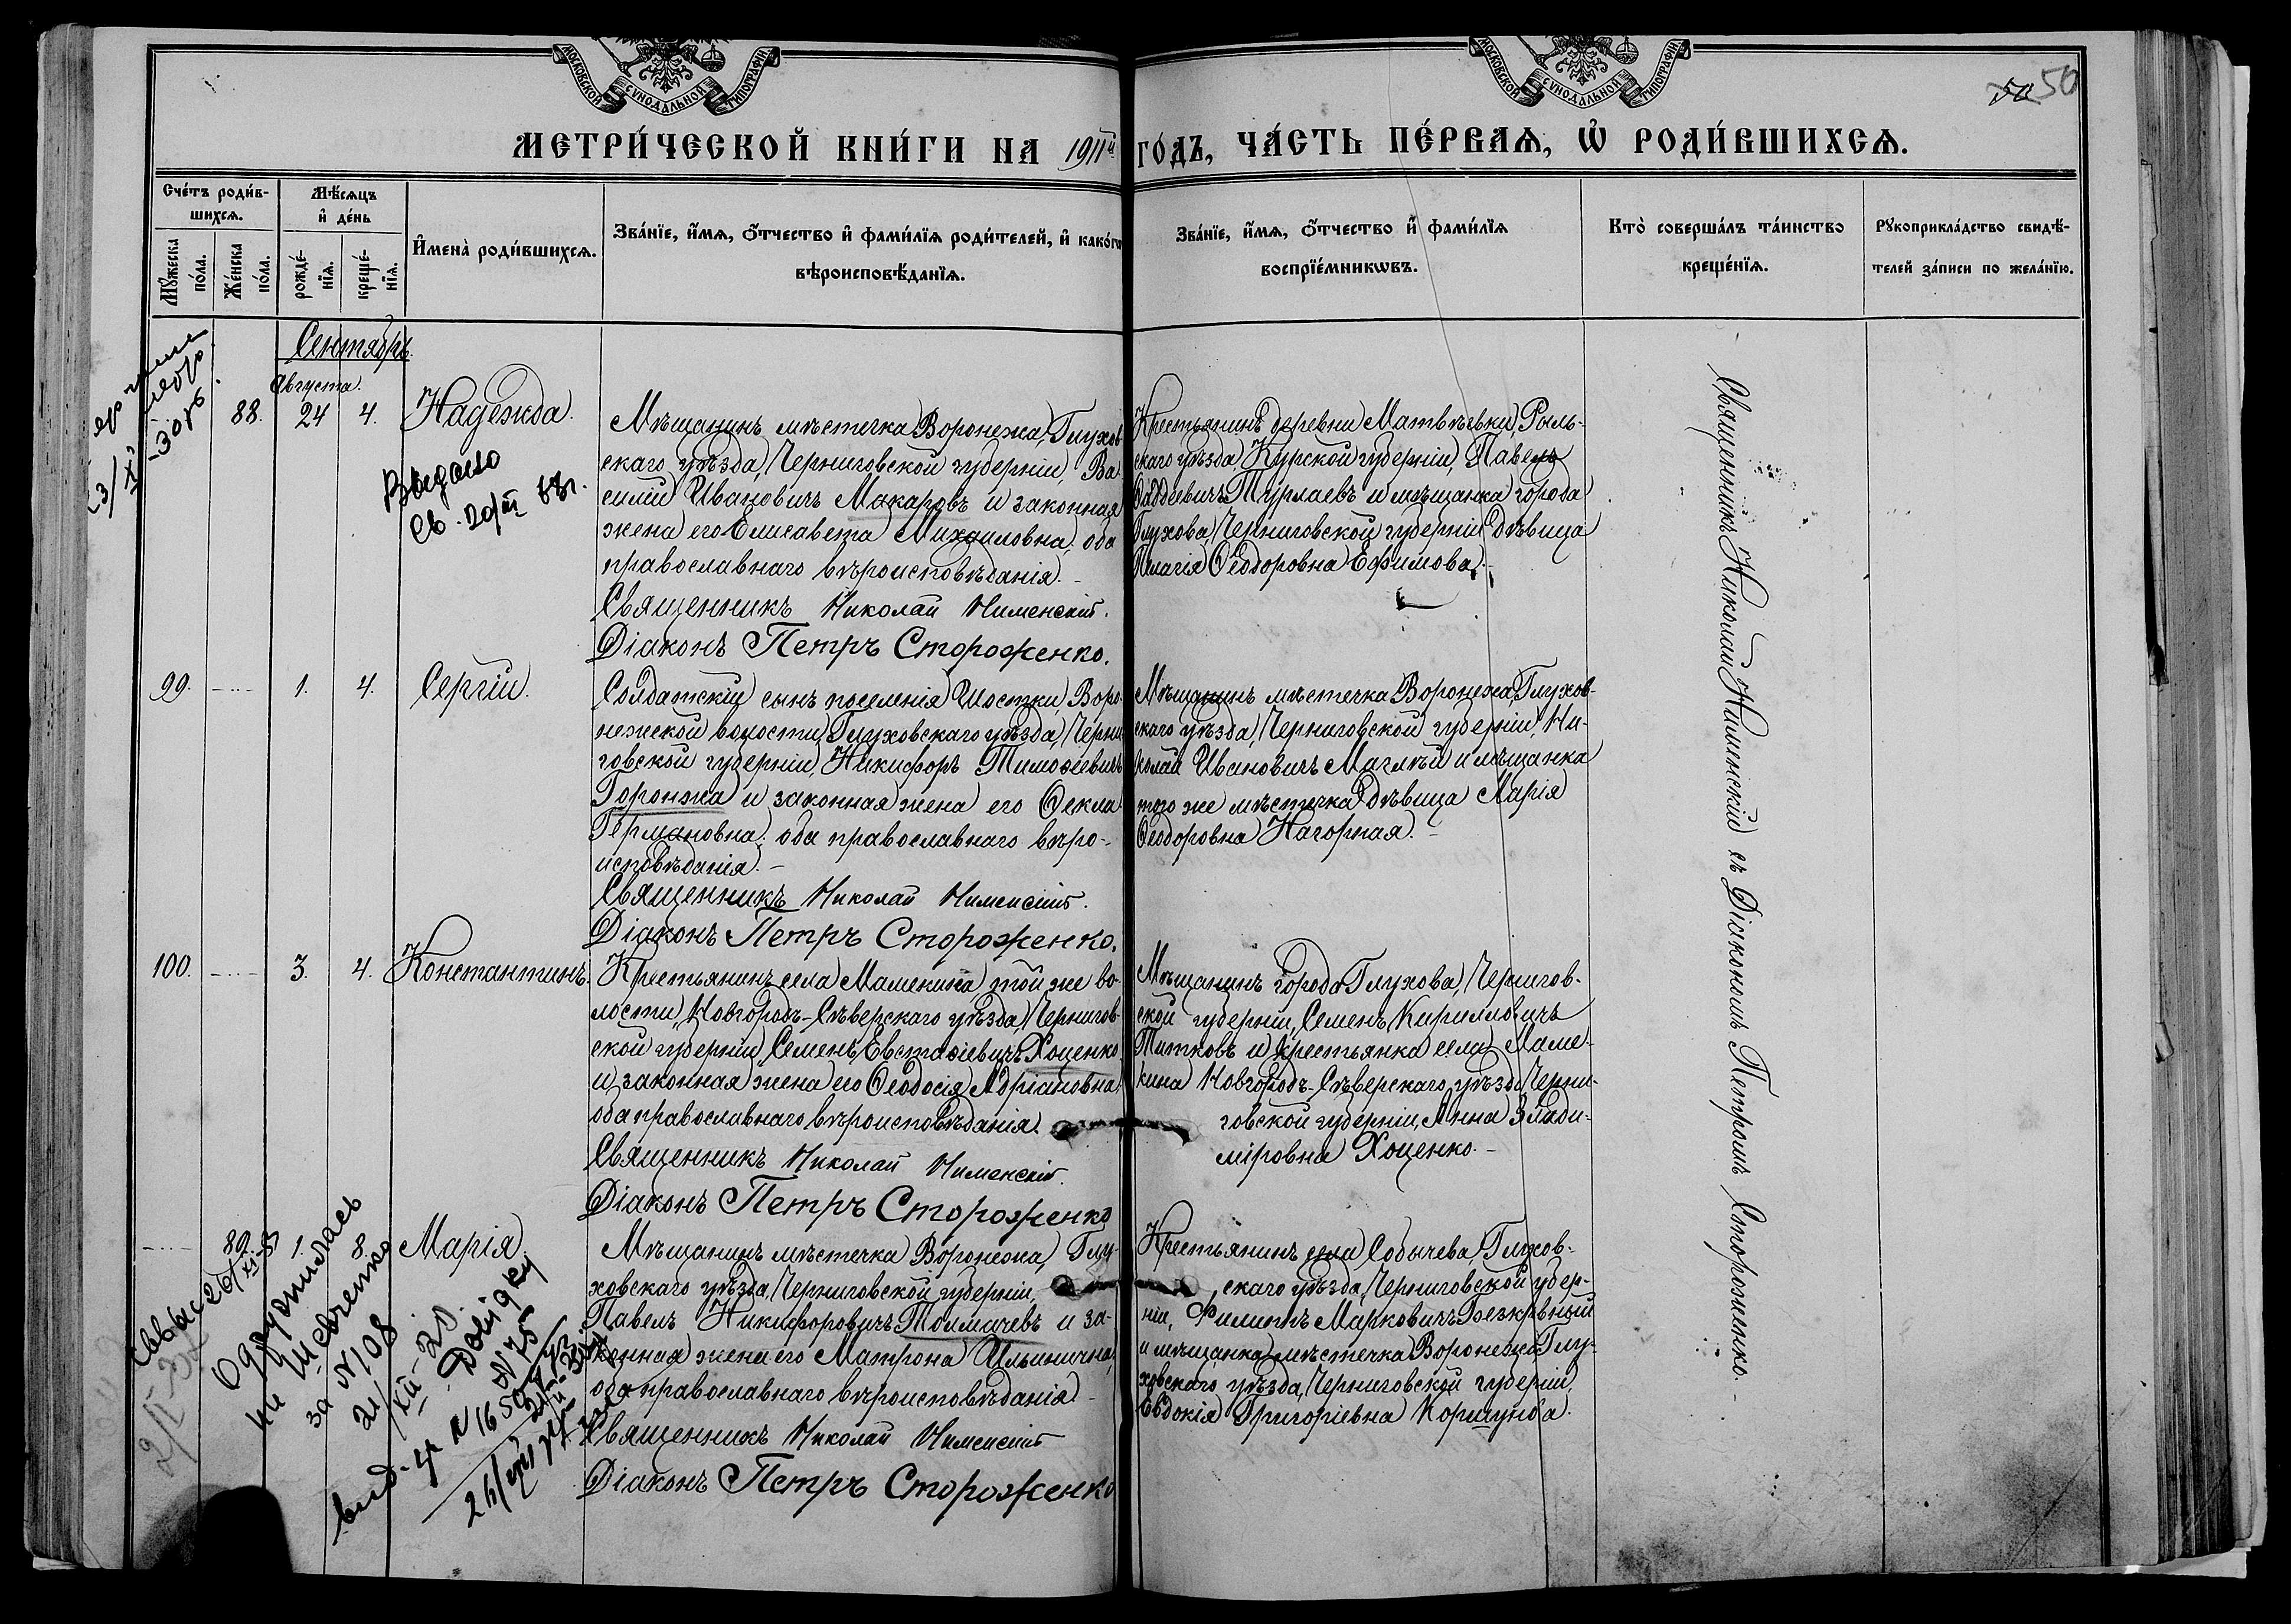 МОСКОВСКОЙ СѴНОДАЛЬНОЙ ТИПОГРАФІИ
МОСКОВСКОЙ СѴНОДАЛЬНОЙ ТИПОГРАФІИ
50
МЕТРИ́ЧЕСКОЙ КНИ́ГИ НА 1911й ГО́ДЪ, ЧА́СТЬ ПЕ́РВАѦ, Ѽ РОДИ́ВШИХСѦ.
Сче́тъ роди́в-
шихсѧ.
Мѣ́сѧцъ
и҆ де́нь
И҆мена̀ роди́вшихсѧ.
Зва́нїе, и҆́мѧ, ѻ҆́тчество и҆ фами́лїѧ роди́телей, и҆ како́гѡ
вѣроисповѣ́данїѧ.
Зва́нїе, и҆́мѧ, ѻ҆́тчество и҆ фами́лїѧ
воспрїе́мникѡвъ.
Кто̀ соверша́лъ та́инство
креще́нїѧ.
Рꙋкоприкла́дство свидѣ́-
телей за́писи по жела́нїю.
Мꙋ́жеска
по́ла.
Же́нска
по́ла.
рожде́-
нїѧ.
креще́-
нїѧ.
Сентябрь
Августа.
88. 24 4. Надежда.
Мѣщанинъ мѣстечка Воронежа, Глухов
скаго уѣзда, Черниговской губерніи, Ва
силій Ивановичъ Макаровъ и законная
жена его Елисавета Михаиловна, оба
православнаго вѣроисповѣданія. -
Священникъ Николай Нименскій.
Діаконъ Петръ Стороженко.
Крестьянинъ деревни Матвѣевки, Рыль-
скаго уѣзда, Курской губерніи, Павелъ
Фаддеевичъ Турлаевъ и мѣщанка города
Глухова, Черниговской губерніи дѣвица
Пелагія Ѳеодоровна Ефимова. -
Священникъ Николай Нименскій съ Діакономъ Петромъ Стороженко. -
99. - ... - 1. 4. Сергій.
Солдатскій сынъ поселенія Шостки, Воро-
нежской волости, Глуховскаго уѣзда, Черни
говской губерніи, Никифоръ Тимоѳеевичъ
Горонжа и законная жена его Ѳекла
Германовна, оба православнаго вѣро-
исповѣданія. -
Священникъ Николай Нименскій.
Діаконъ Петръ Стороженко.
Мѣщанинъ мѣстечка Воронежа, Глухов-
скаго уѣзда, Черниговской губерніи, Ни-
колай Ивановичъ Маглѣй и мѣщанка
того же мѣстечка дѣвица Марія
Ѳеодоровна Нагорная. -
100. - ... - 3. 4. Константинъ.
Крестьянинъ села Мамекина, той же во-
лости, Новгородъ-Сѣверскаго уѣзда, Чернигов
ской губерніи, Семенъ Евстафіевичъ Хоценко
и законная жена его Ѳеодосія Адріановна,
оба православнаго вѣроисповѣданія.
Священникъ Николай Нименскій.
Діаконъ Петръ Стороженко
Мѣщанинъ города Глухова, Чернигов-
ской губерніи, Семенъ Кирилловичъ
Титковъ и крестьянка села Маме-
кина Новгородъ-Сѣверскаго уѣзда Черни-
говской губерніи, Анна Влади-
міровна Хоценко. -
- ... - 89. 1. 8. Марія.
Мѣщанинъ мѣстечка Воронежа, Глу-
ховскаго уѣзда, Черниговской губерніи,
Павелъ Никифоровичъ Толмачевъ и за-
конная жена его Матрона Ильинична,
оба православнаго вѣроисповѣданія -
Священникъ Николай Нименскій
Діаконъ Петръ Стороженко
Крестьянинъ села Собычева, Глухов-
скаго уѣзда, Черниговской губер-
ніи, Филиппъ Марковичъ Безкрѣвный
и мѣщанка мѣстечка Воронежа Глу-
ховскаго уѣзда, Черниговской губерніи,
Евдокія Григоріевна Коршунова.
Видано
Св. 20/III
Одружилась
на Шевченко
за №108
21/XII-20.
Довідку
№75